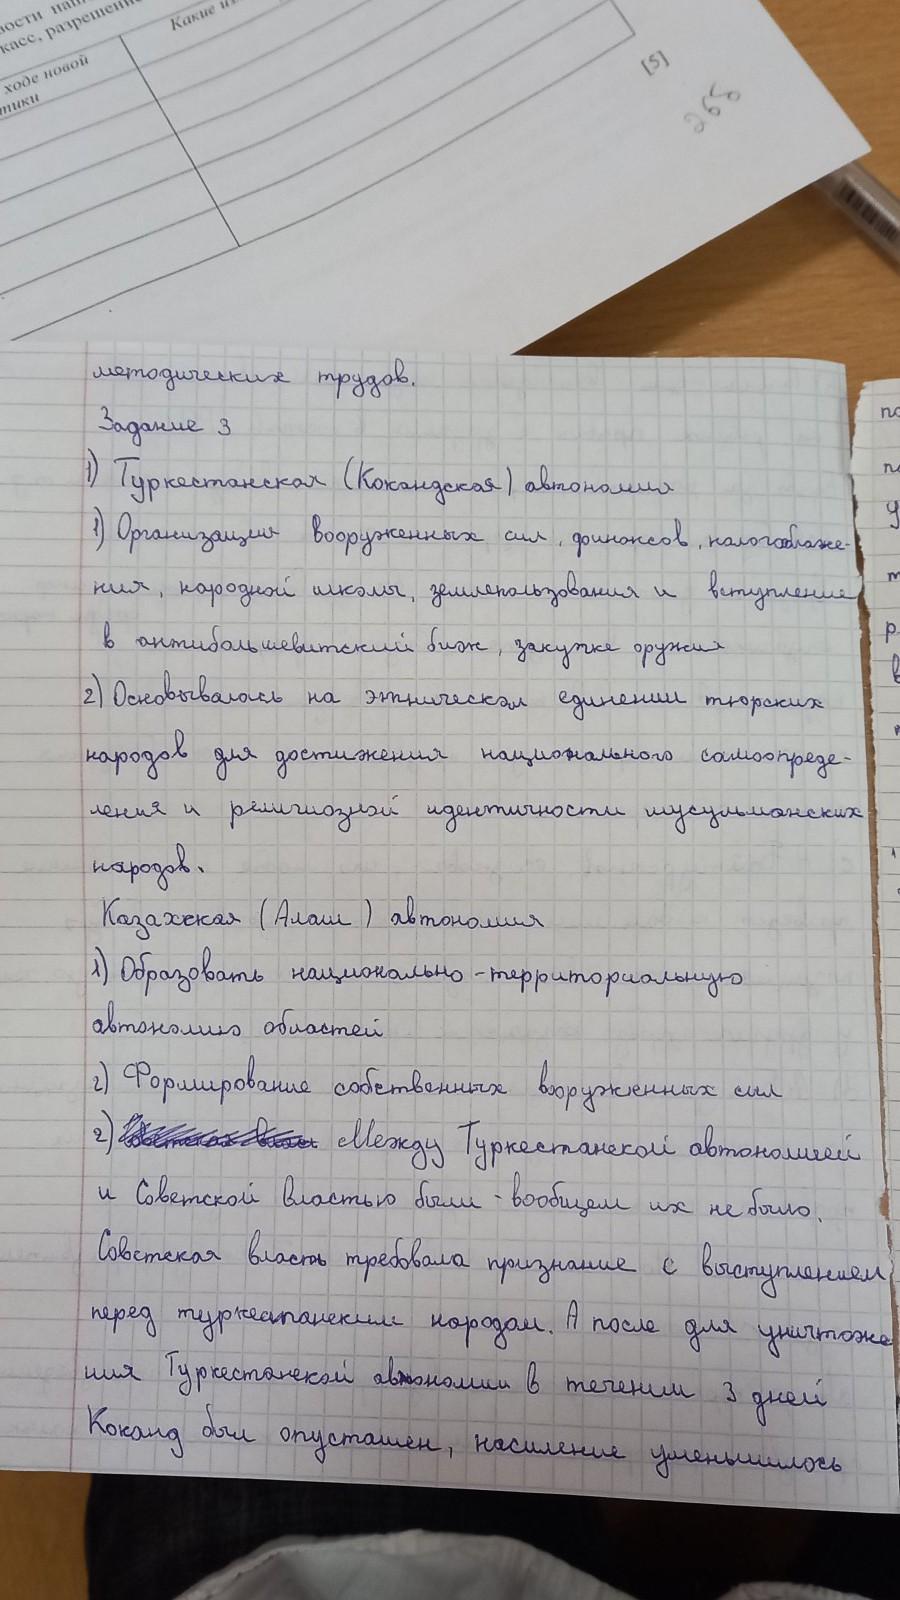 ности наш
касс, разрешение
ходе новой
тики
Какие из
[5]
методических трудов.
Задание 3
1) Туркестанская (Кокандская) автономия
1) Организация вооруженных сил, финансов, налогоблаже-
ния, народной школы, землепользования и вступление
в антибольшевитский блок, закупке оружия
2) Основывалось на этническом единении тюрских
народов для достижения национального самоопреде-
ления и религиозной идентичности мусульманских
народов.
Казахская (Алаш) автономия
1) Образовать национально-территориальную
автономию областей
2) Формирование собственных вооруженных сил
2) Между Туркестанской автономией
и Советской властью были - вообщем их не было.
Советская власть требовала признание с выступлением
перед туркестанским народом. А после для уничтоже
ния Туркестанской автономии в течении 3 дней
Коканд был опусташен, насиление уменьшилось